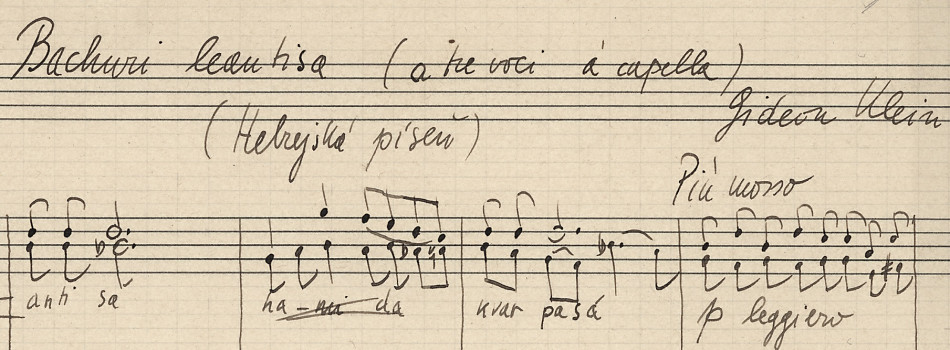 Bachuri leantisa (a tre voci á capella)
Gideon Klein
(Hebrejská píseň)
Più mosso
anti sa ha - da kvar pasá p leggiero